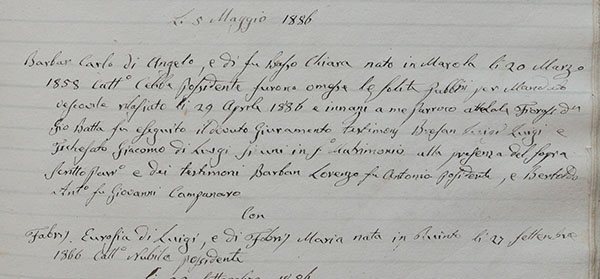 Li 5 Maggio 1886
Barban Carlo di Angelo, e di fu Basso Chiara nato in Marola li 20 Marzo
1858 Catt.º Celibe possidente furono omesse le solite pubbliz per Mandato
vescovile rilasciato li 29 Aprile 1886 e innanzi a me parroco
Gio Batta fu eseguito il dovuto Giuramento testimonj Luigi e
Giacomo di Luigi si unì in S.º Matrimonio alla presenza del sopra
scritto parr.º e dei testimoni Barban Lorenzo fu Antonio possidente, e Bertoldo
Ant.º fu Giovanni Campanaro
Con
Fabris Eurosia di Luigi, e di Fabris Maria nata in li 27 settembre
1866 Catt.º Nubile possidente